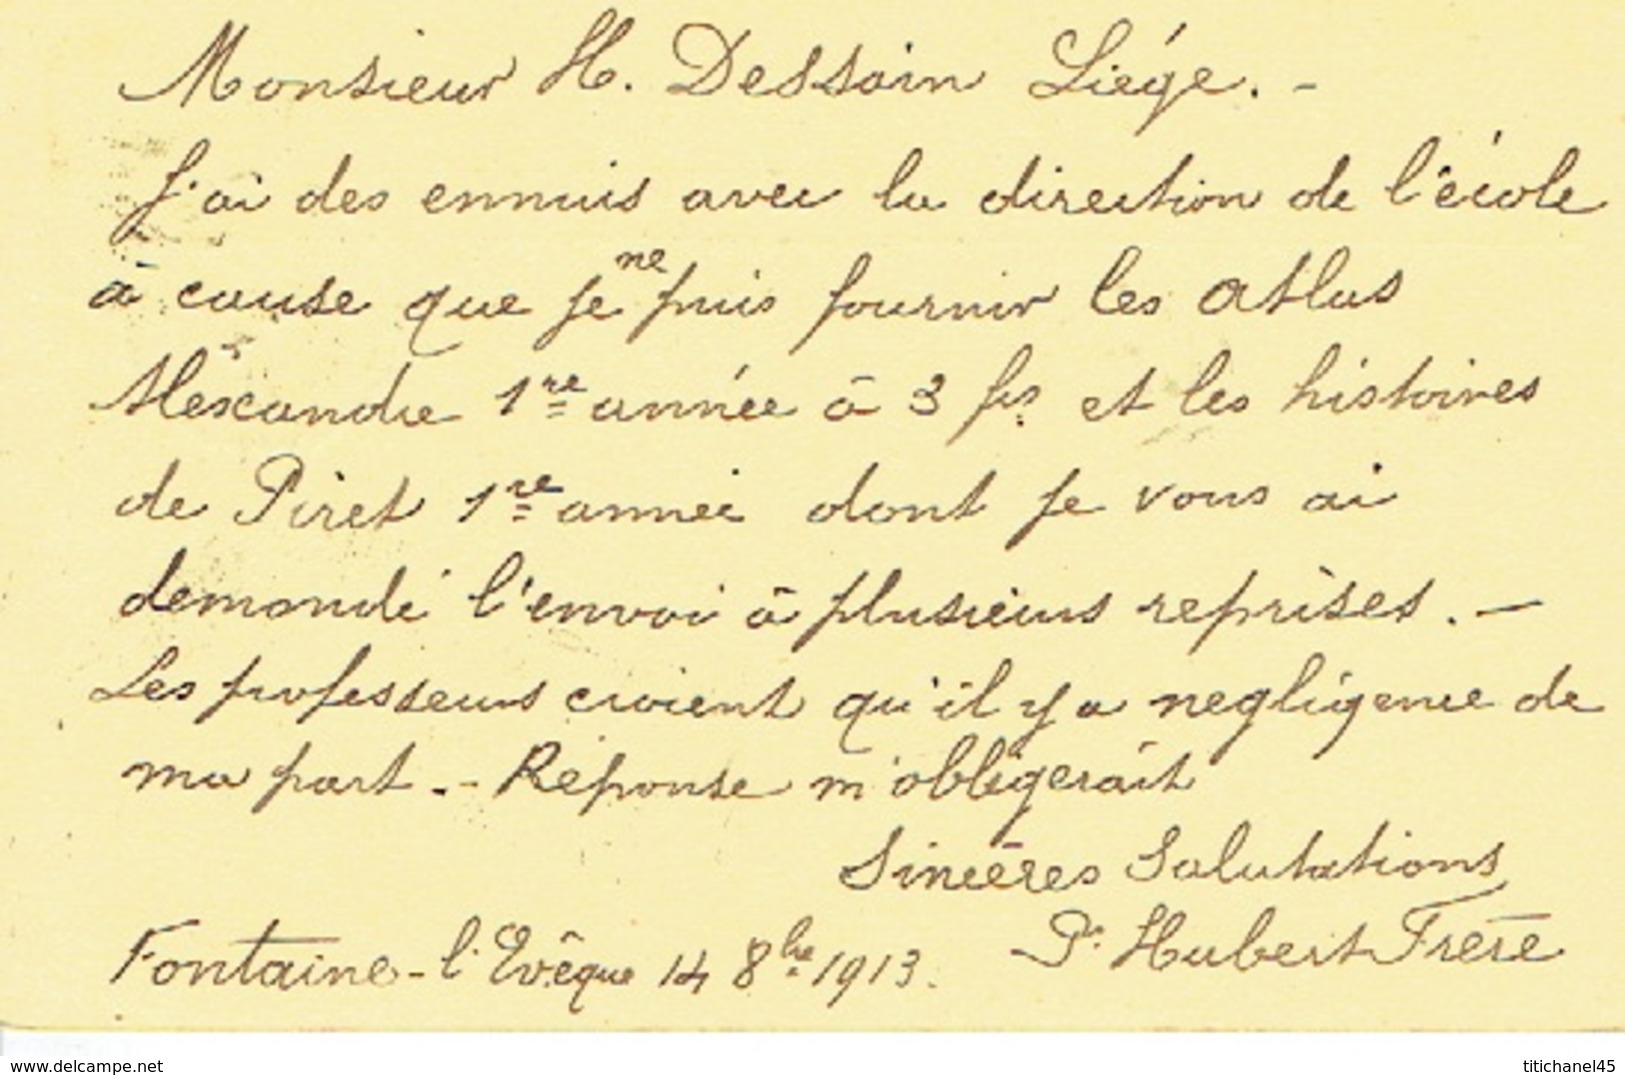 Monsieur H. Dessain Liége. -
J'ai des ennuis avec la direction de l'école
à cause que je ne puis fournir les atlas
Alexandre 1re année à 3 frs et les histoires
de Piret 1re année dont je vous ai
demandé l'envoi à plusieurs reprises. —
Les professeurs croient qu'il y a negligence de
ma part. - Réponse m'obligerait
Sincères Salutations
Pr. Hubert Frère
Fontaine-l'Evêque 14 8bre 1913.
www.delcampe.net titichanel45